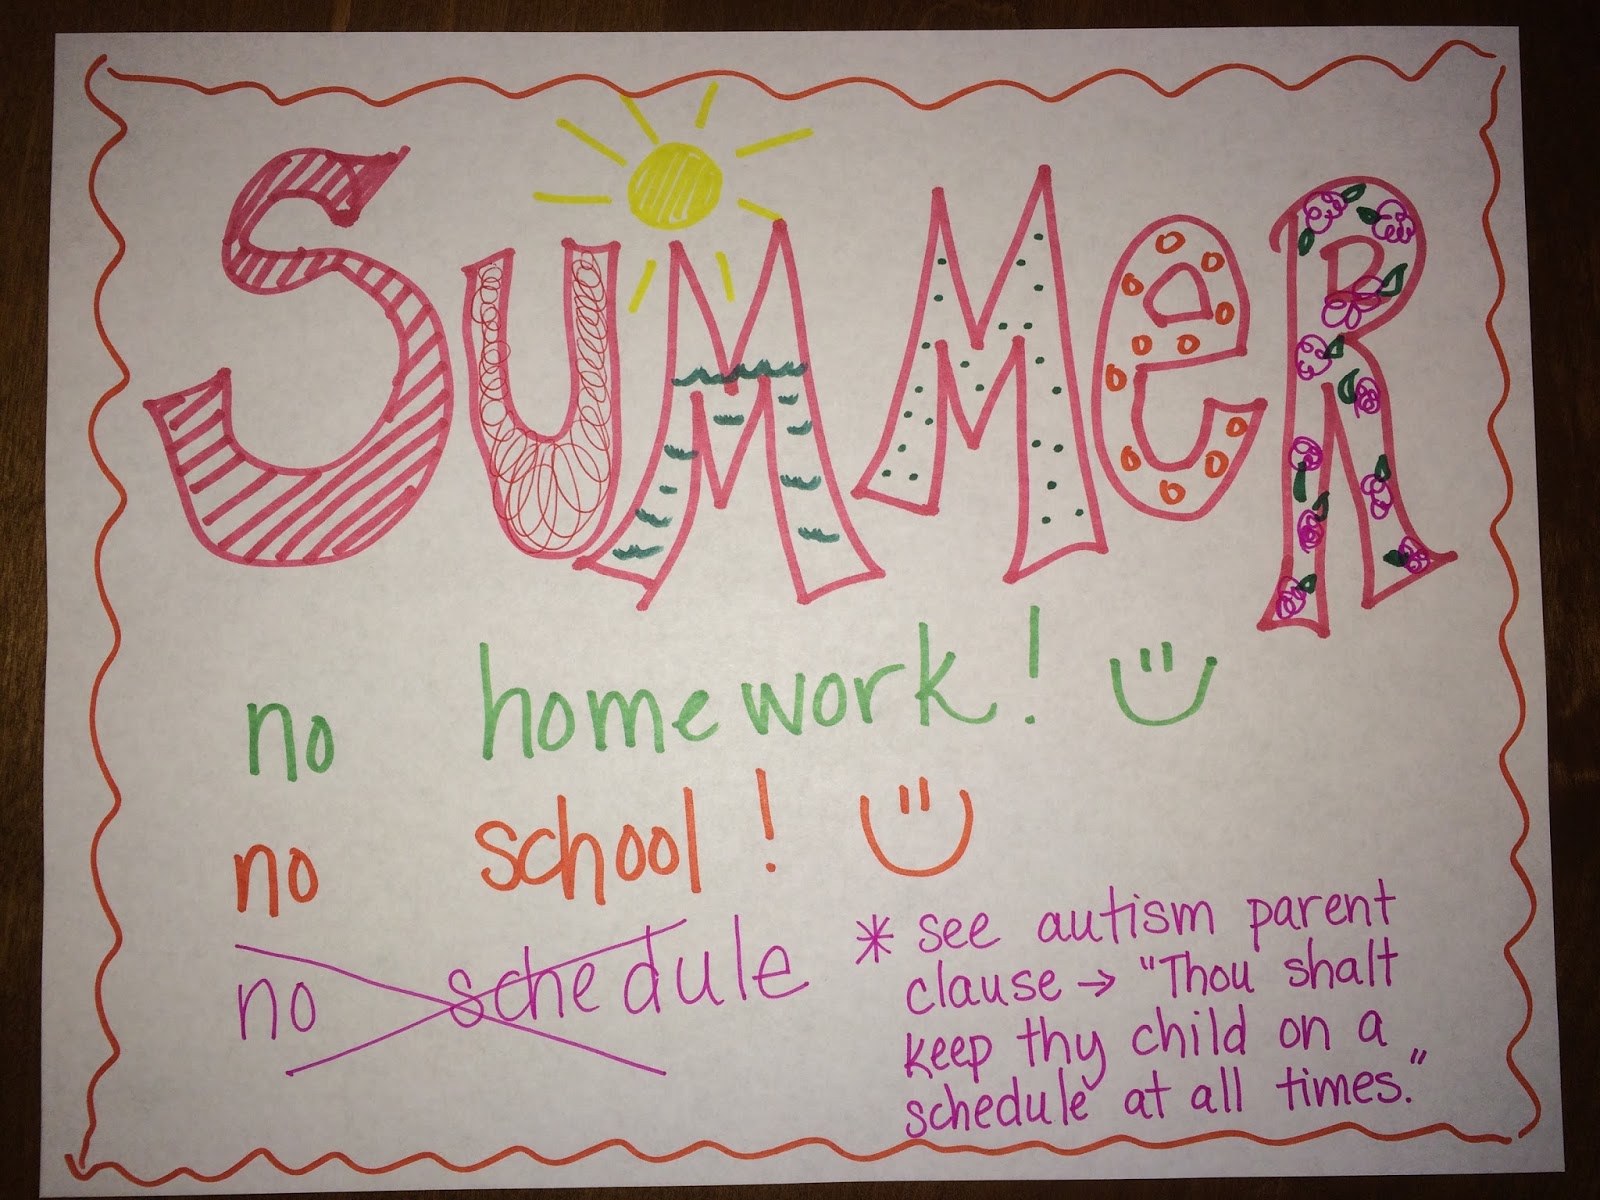 SUMMeR
no homework!
no school!
no schedule
* see autism parent
clause → "Thou shalt
keep thy child on a
schedule at all times."